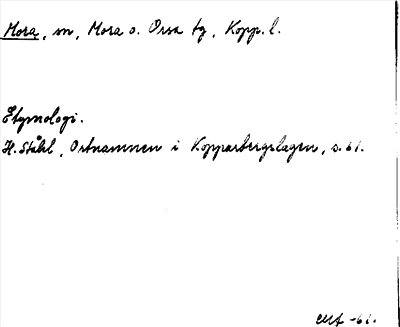 Mora, sn, Mora o. Orsa tg, Kopp. l.
Etymologi.
H. Ståhl, Ortnamnen i Kopparbergslagen, s. 61.
-61.